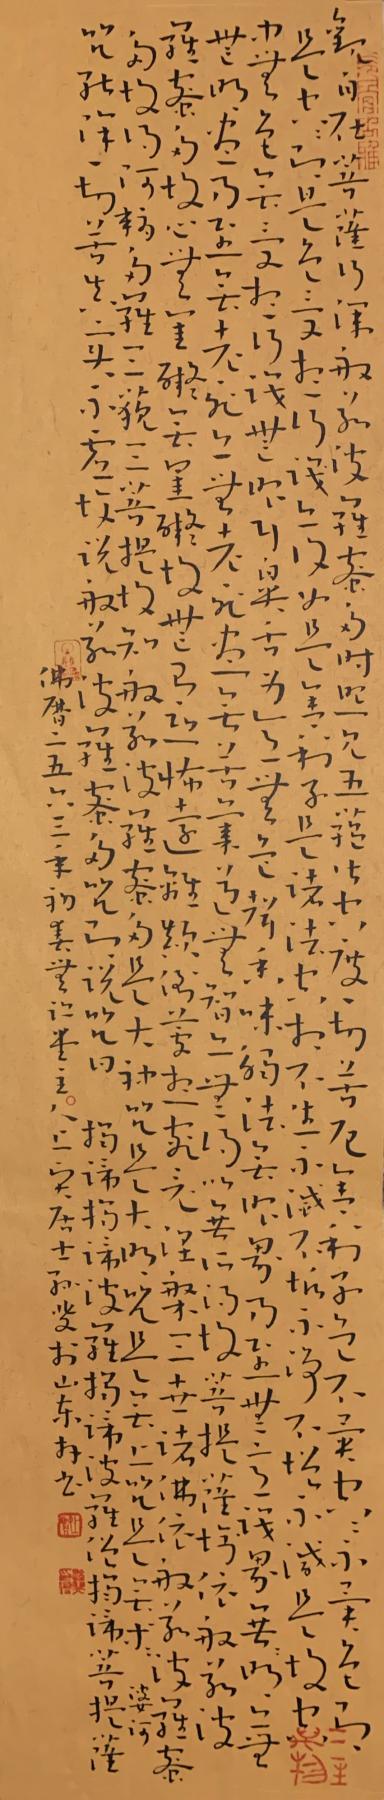 觀自在菩薩行深般若波羅蜜多時照見五蘊皆空度一切苦厄舍利子色不異空〻不異色〻即
是空〻即是色受想行識亦復如是舍利子是諸法空相不生不滅不垢不淨不增不減是故空
中無色無受想行識無眼耳鼻舌身意無色聲香味觸法無眼界乃至無意識界無無明亦無
無明盡乃至無老死亦無老死盡無苦集滅道無智亦無得以無所得故菩提薩埵依般若波
羅蜜多故心無罣礙無罣礙故無有恐怖遠離顛倒夢想究竟涅槃三世諸佛依般若波羅蜜
多故得阿耨多羅三藐三菩提故知般若波羅蜜多是大神咒是大明咒是無上咒是無等〻
咒能除一切苦真實不虛故說般若波羅蜜多咒即說咒曰 揭諦揭諦波羅揭諦波羅僧揭諦菩提薩
婆訶
佛曆二五六三年初春無 堂主 居士孫 於山東 書